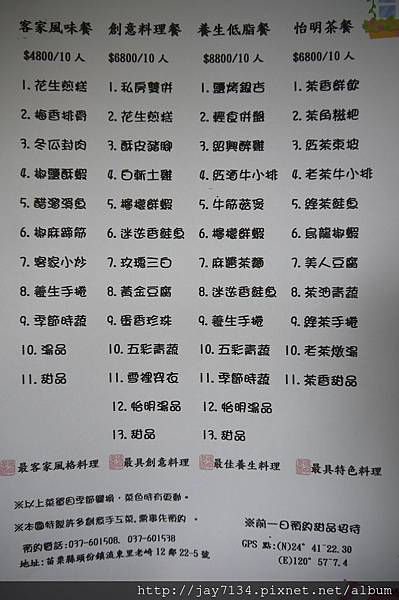 客家風味餐
$4800/10人
1.花生煎糕
2.梅香排骨
3.冬瓜封肉
4.椒鹽酥蝦
5.醋溜滑魚
6.椒麻蹄筋
7.客家小炒
8.養生手捲
9.季節時蔬
10.湯品
11.甜品
最客家風格料理
創意料理餐
$6800/10人
1.私房雙併
2.花生煎糕
3.酥皮豬腳
4.白斬土雞
5.檸檬鮮蝦
6.迷迭香鮭魚
7.玫瑰三白
8.黃金豆腐
9.蛋香珍珠
10.五彩青蔬
11.雪裡穿衣
12.怡明湯品
13.甜品
最具創意料理
養生低脂餐
$8800/10人
1.鹽烤銀杏
2.輕食併盤
3.紹興醉雞
4.紅酒牛小排
5.牛筋菇煲
6.檸檬鮮蝦
7.麻醬茶麵
8.迷迭香鮭魚
9.養生手捲
10.五彩青蔬
11.季節時蔬
12.怡明湯品
13.甜品
最佳養生料理
怡明茶餐
$6800/10人
1.茶香鮮飲
2.茶角糍粑
3.紅茶東坡
4.老茶牛小排
5.綠茶鮭魚
6.烏龍椒蝦
7.美人豆腐
8.茶油青蔬
9.綠茶手捲
10.老茶燉湯
11.茶香甜品
最具特色料理
※以上菜單因季節變換，菜色時有更動。
※本園特製許多創意手工菜，需事先預約。
預約電話:037-601508．037-601538
地址:苗栗縣頭份鎮流東里老崎12鄰22-5號
※前一日預約甜品招待
GPS 點:(N)24° 41~22.30
(E)120° 57~7.4
http://jay7134.pixnet.net/album